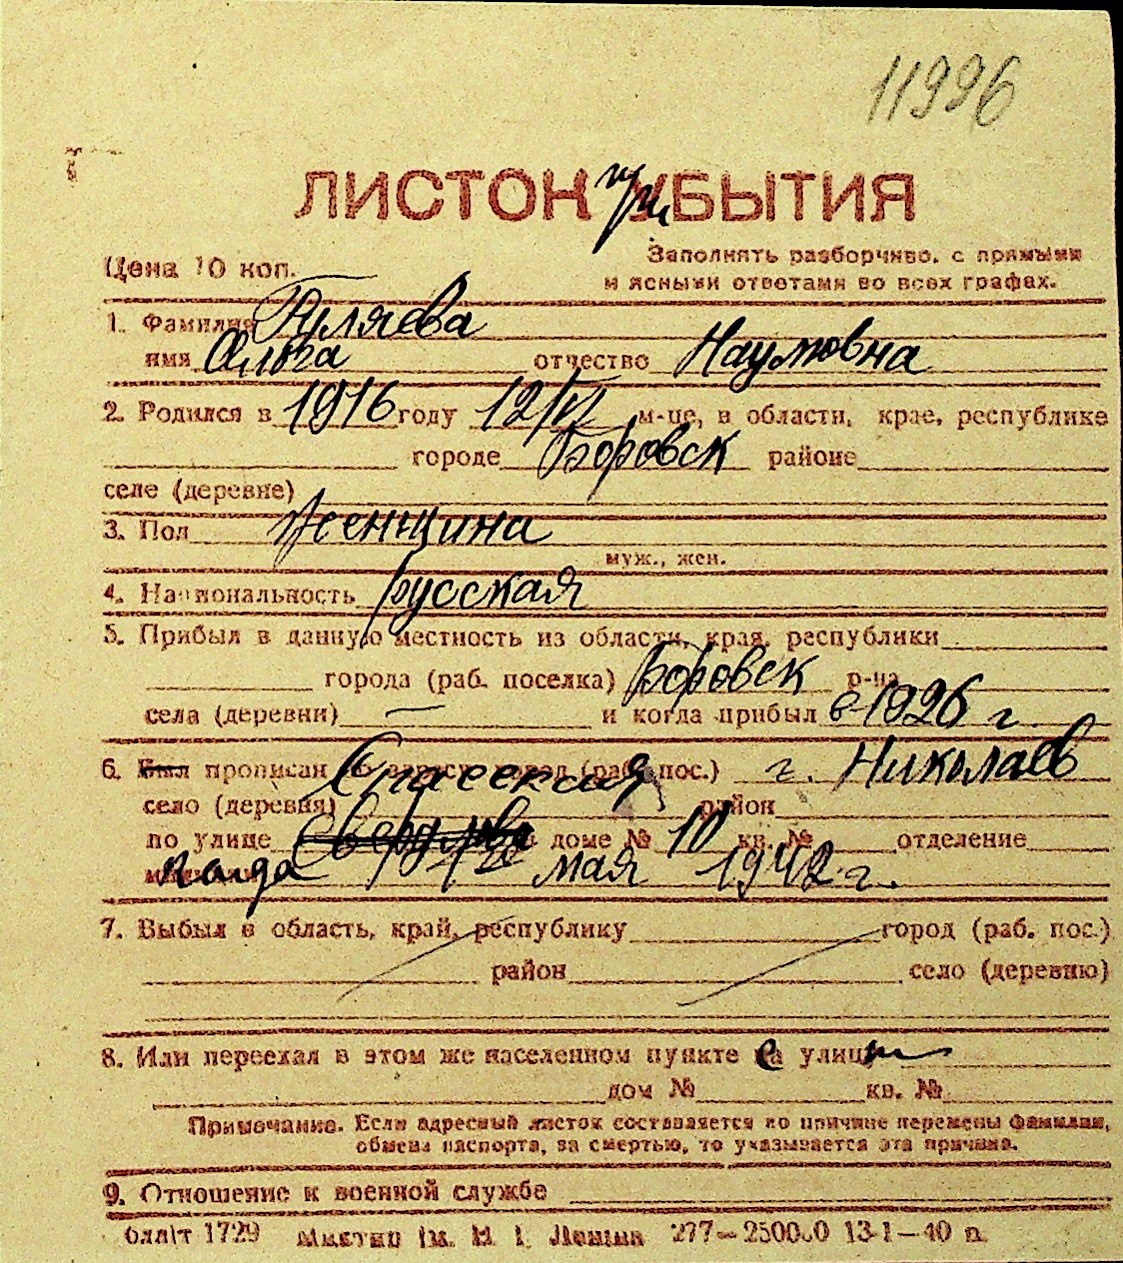 11996
ЛИСТОК приБЫТИЯ
Цена 10 коп.
Заполнять разборчиво, с прямыми
и ясными ответами во всех графах.
1. Фамилия Гуляева
имя Ольга отчество Наумовна
2. Родился в 1916 году 12/VI м-це, в области, крае, республике
городе Боровск районе
селе (деревне)
3. Пол женщина
муж., жен.
4. Национальность русская
5. Прибыл в данную местность из области, края, республики
города (раб. поселка) Боровск р-на
села (деревни) — и когда прибыл в 1926 г.
6. Был прописан по адресу: город (раб. пос.) г. Николаев
Спасская
село (деревня) район
по улице Свердлова доме № 10 кв. № отделение
когда 1 мая 1942 г.
7. Выбыл в область, край, республику город (раб. пос.)
район село (деревню)
8. Или переехал в этом же населенном пункте с улицы
дом № кв. №
Примечание. Если адресный листок составляется по причине перемены фамилии,
обмена паспорта, за смертью, то указывается эта причина.
9. Отношение к военной службе
1729 ім. 277—250000 13-1—40 р.